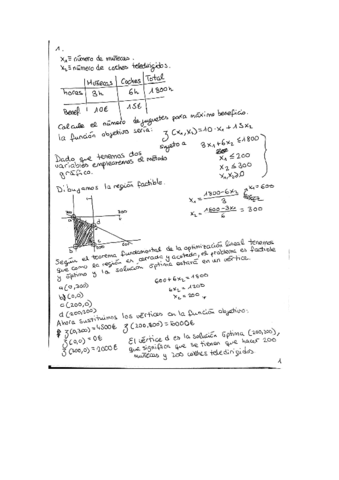 1.
X₁ ≡ número de muñecas.
X₂ ≡ número de coches teledirigidos.
Muñecas Coches Total
horas 3h 6h 1800h
Benef. 10€ 15€
Calcule el número de juguetes para máximo beneficio.
la función objetivo sería: z(x₁,x₂)=10·x₁+15x₂
sujeto a 3x₁+6x₂≤1800
x₁≤200
x₂≤300
x₁,x₂≥0
Dado que tenemos dos
variables emplearemos el método
gráfico.
Dibujamos la región factible.
x₁= 1800-6x₂ / 3 x₁=600
x₂= 1800-3x₁ / 6 = 300
Según el teorema fundamental de la optimización lineal tenemos
que como la región es cerrada y acotada, el problema es factible
y óptimo y la solución óptima estará en un vértice.
a(0,300)
b(0,0)
c(200,0)
d(200,200)
600+6x₂=1800
6x₂=1200
x₂=200
Ahora sustituimos los vértices en la función objetivo:
z(0,300)=4500€ z(200,200)=5000€
z(0,0)=0€
z(200,0)=2000€
El vértice d es la solución óptima (200,200),
que significa que se tienen que hacer 200
muñecas y 200 coches teledirigidos
1